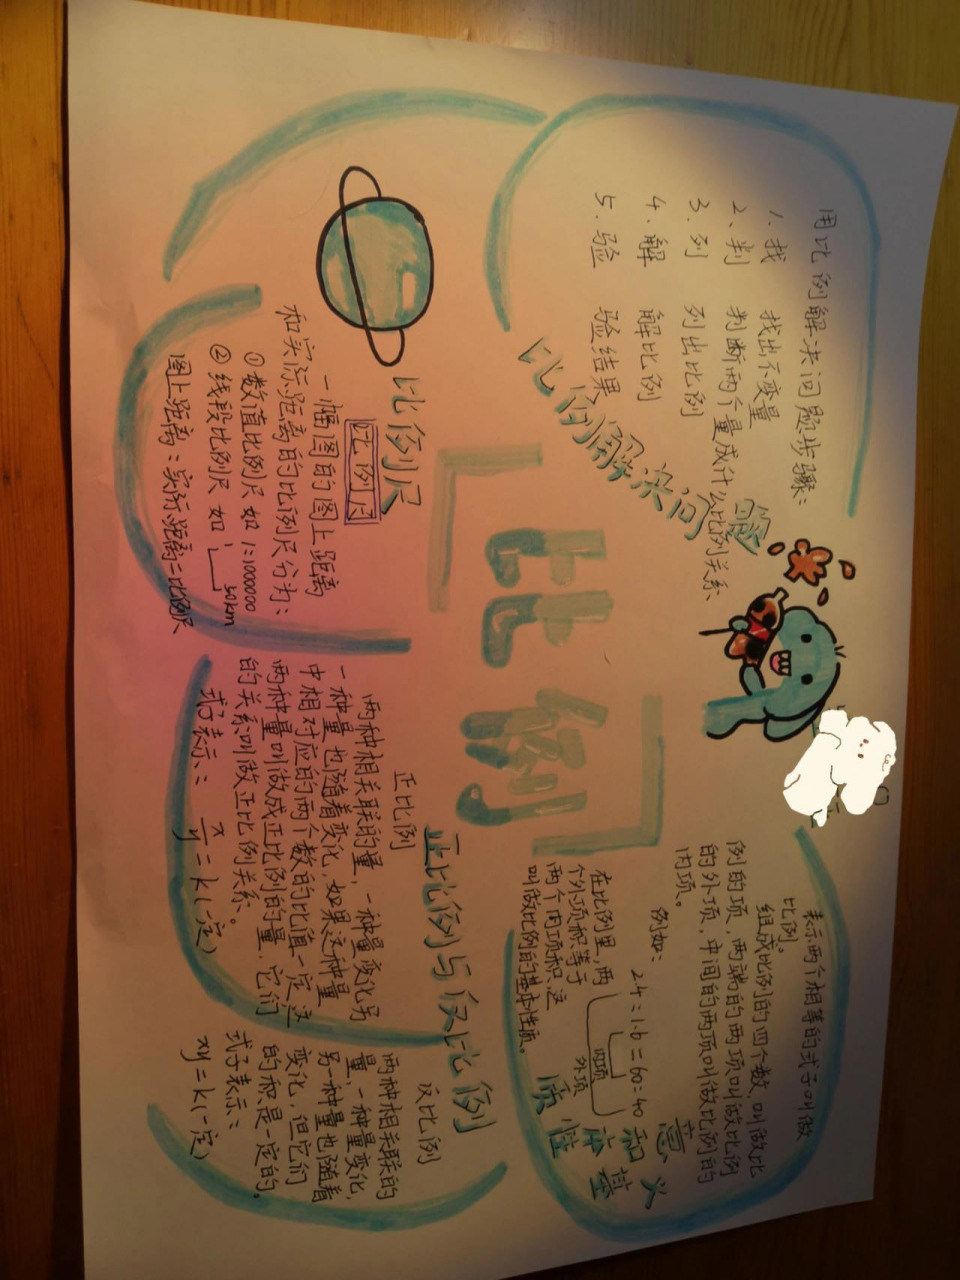 比例
比例解决问题
用比例解决问题步骤：
1.找 找出不变量
2.判 判断两个量成什么比例关系
3.列 列出比例
4.解 解比例
5.验 验结果
意义
和基
本性
质
表示两个相等的式子叫做
比例。
组成比例的四个数,叫做比
例的项，两端的两项叫做比例
的外项，中间的两项叫做比例的
内项。
例如：
2.4=1.6=60:40
内项
外项
在比例里，两
个外项积等于
两个内项积 这
叫做比例的基本性质。
比例尺
比例尺
一幅图的图上距离
和实际距离的比例尺分为：
①数值比例尺 如 1:1000000
②线段比例尺 如
50km
图上距离：实际距离=比例尺
正比例与反比例
正比例
两种相关联的量，一种量变化另
一种量也随着变化，如果这种量
中相对应的两个数的比值一定 这
两种量叫做成正比例的量，它们
的关系叫做正比例关系。
式子表示：
x/y=k(一定)
反比例
两种相关联的
量，一种量变化，
另一种量也随着
变化，但它们
的积是一定的。
式子表示：
xy=k(一定)